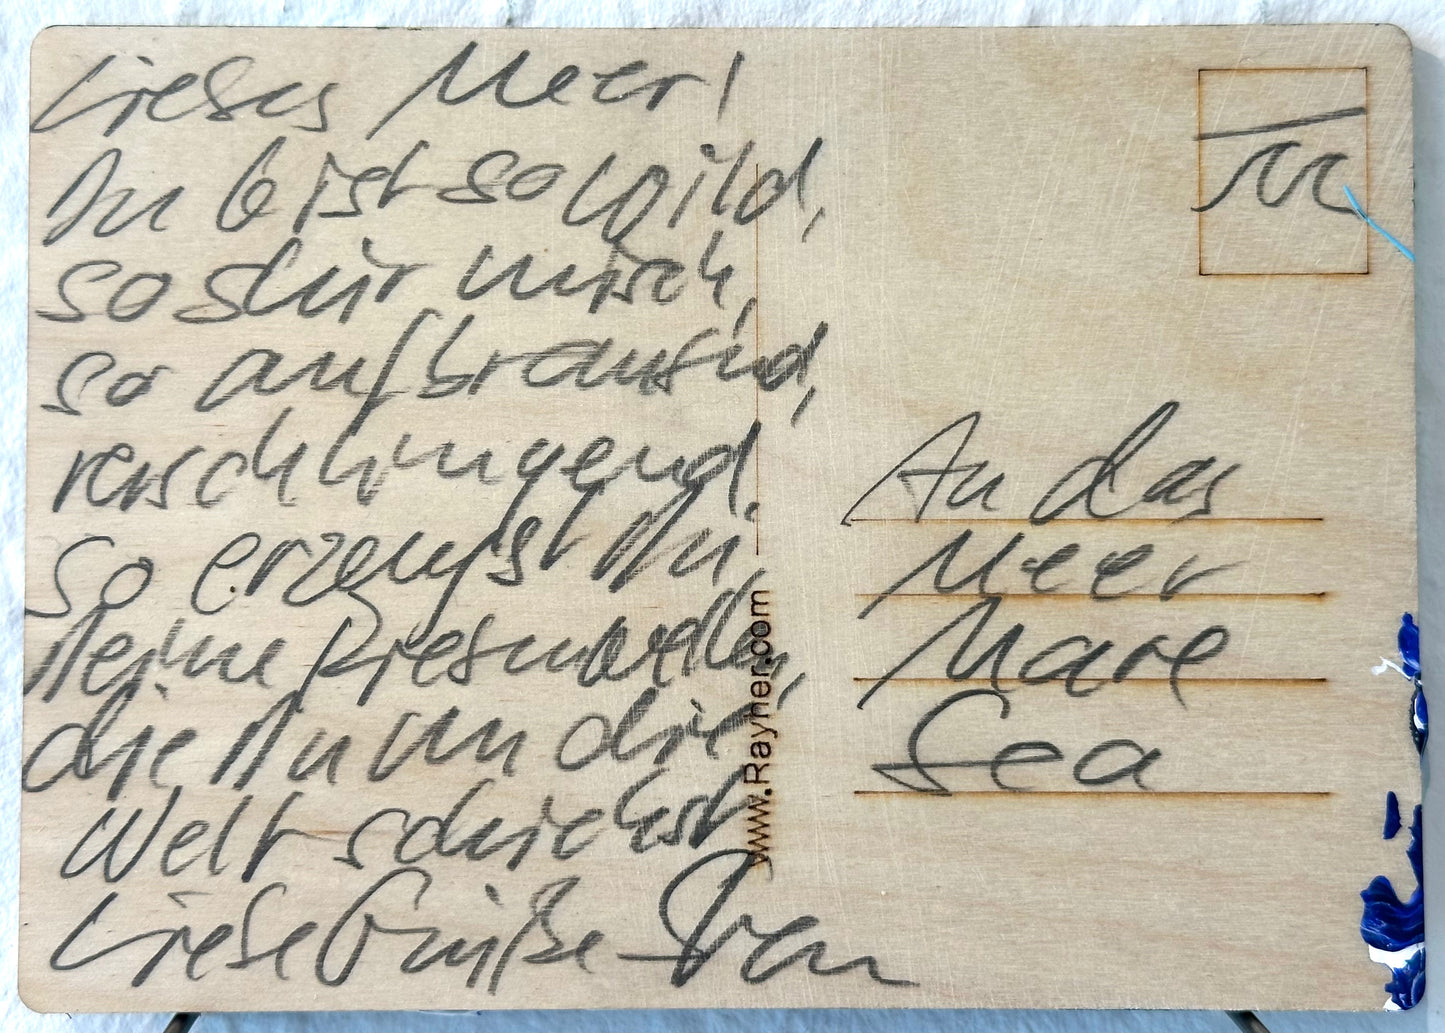 Liebes Meer!
Du bist so wild,
so stürmisch,
so aufbrausend,
verschlingend.
So erzeugst Du
Deine Riesenwellen,
die Du um die
Welt schickst
Liebe Grüße
An das
Meer
Mare
Sea
www.Rayher.com